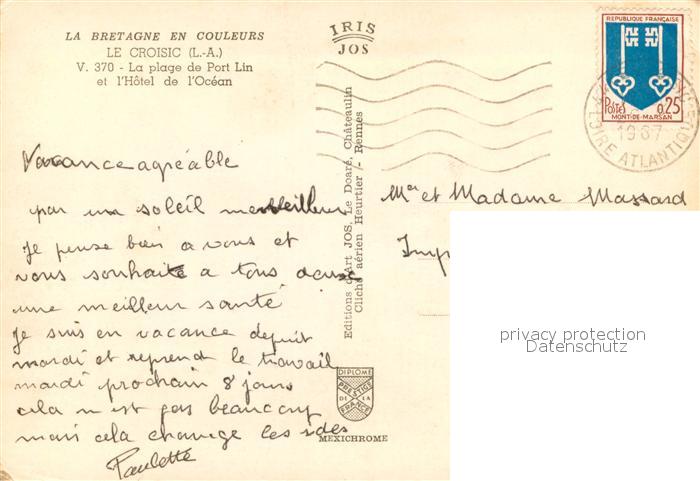 LA BRETAGNE EN COULEURS
LE CROISIC (L.-A.)
V. 370 - La plage de Port Lin
et l'Hôtel de l'Océan
IRIS
JOS
REPUBLIQUE FRANÇAISE
POSTES 0,25
MONT-DE-MARSAN
1967
LOIRE ATLANTIQUE
Vacance agréable
par un soleil merveilleux
Je pense bien a vous et
vous souhaite a tous deux
une meilleur santé
Je suis en vacance depuit
mardi et reprend le travail
mardi prochain 8 jours
cela n'est pas beaucoup
mais cela change les ides
Paulette
Editions d'Art JOS, Le Doaré, Châteaulin
Cliché aérien Heurtier - Rennes
DIPLOME
PRESTIGE
DE LA
FRANCE
MEXICHROME
Mr et Madame Massard
privacy protection
Datenschutz